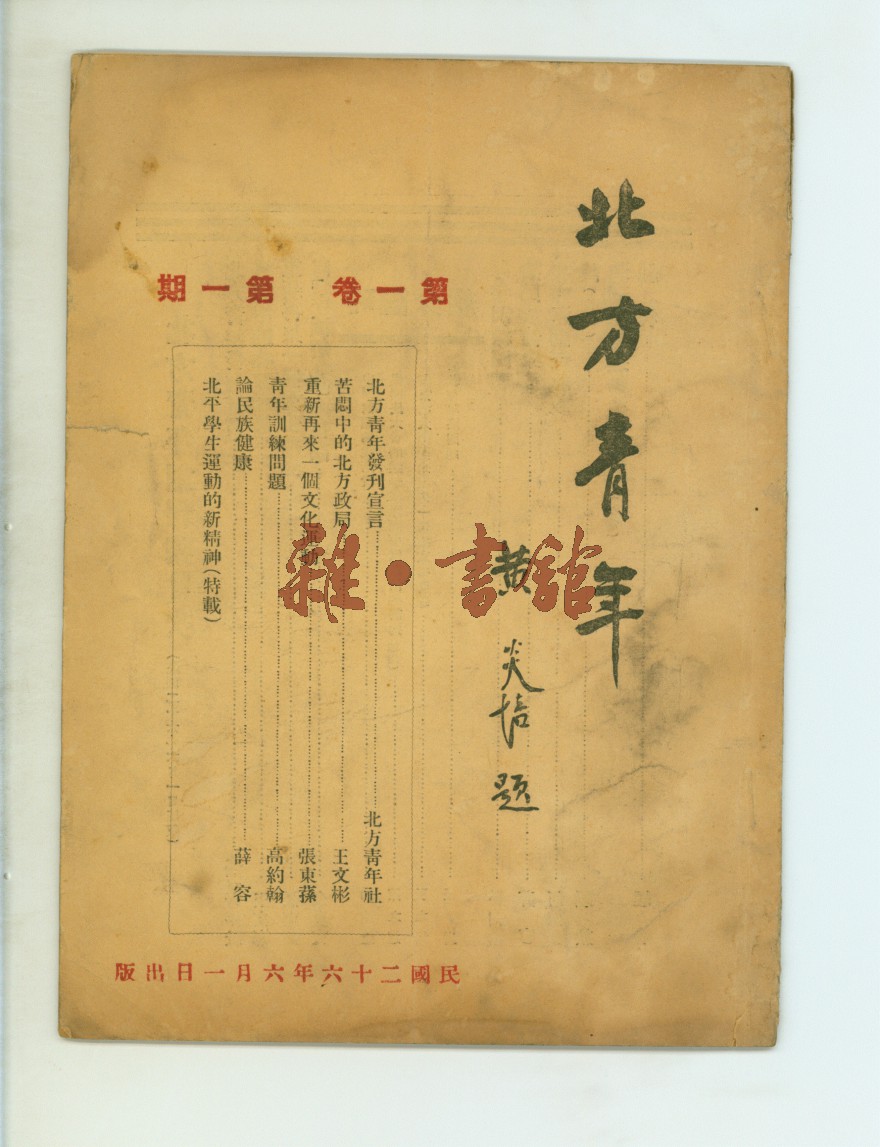 北方青年
黃炎培題
第一卷 第一期
北方青年發刊宣言 北方青年社
苦悶中的北方政局 王文彬
重新再來一個文化運動 張東蓀
青年訓練問題 高約翰
論民族健康 薛容
北平學生運動的新精神(特載)
民國二十六年六月一日出版
雜·書館